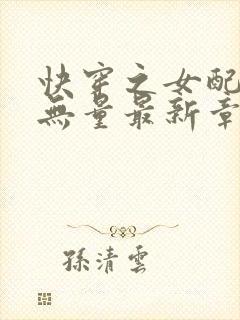 快穿之女配
無量最新章
孫清雲